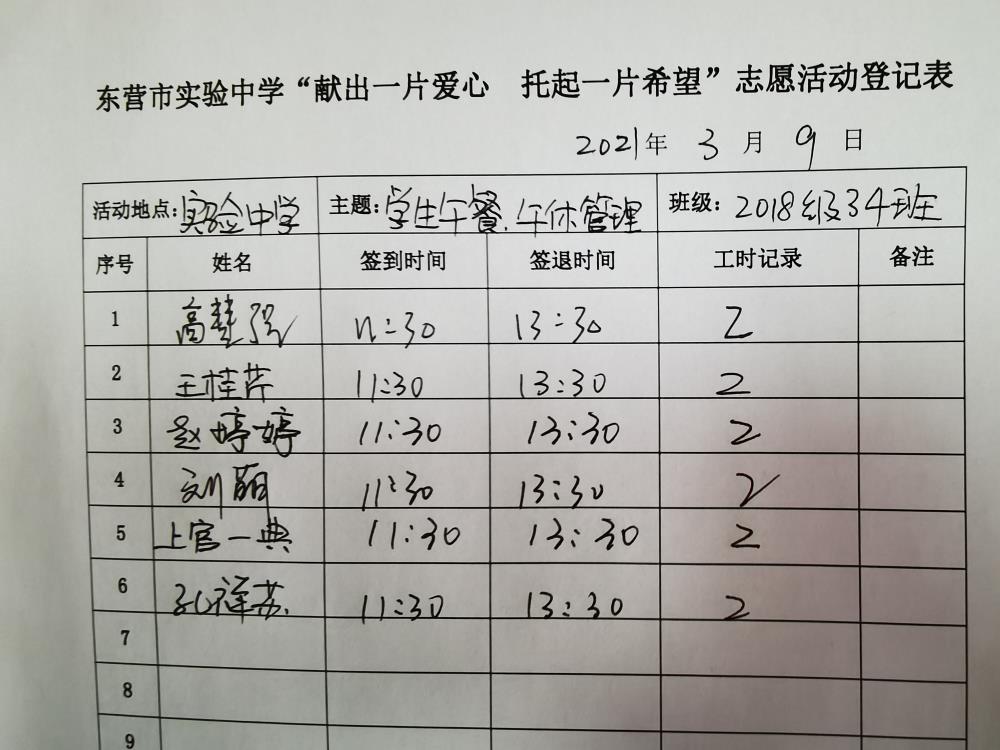 东营市实验中学“献出一片爱心 托起一片希望”志愿活动登记表
2021年 3 月 9 日
活动地点:实验中学 主题:学生午餐.午休管理 班级:2018级34班
序号 姓名 签到时间 签退时间 工时记录 备注
1 高楚强 11:30 13:30 2
2 王桂芹 11:30 13:30 2
3 赵婷婷 11:30 13:30 2
4 刘 11:30 13:30 2
5 上官一典 11:30 13:30 2
6 孔祥苏. 11:30 13:30 2
7
8
9